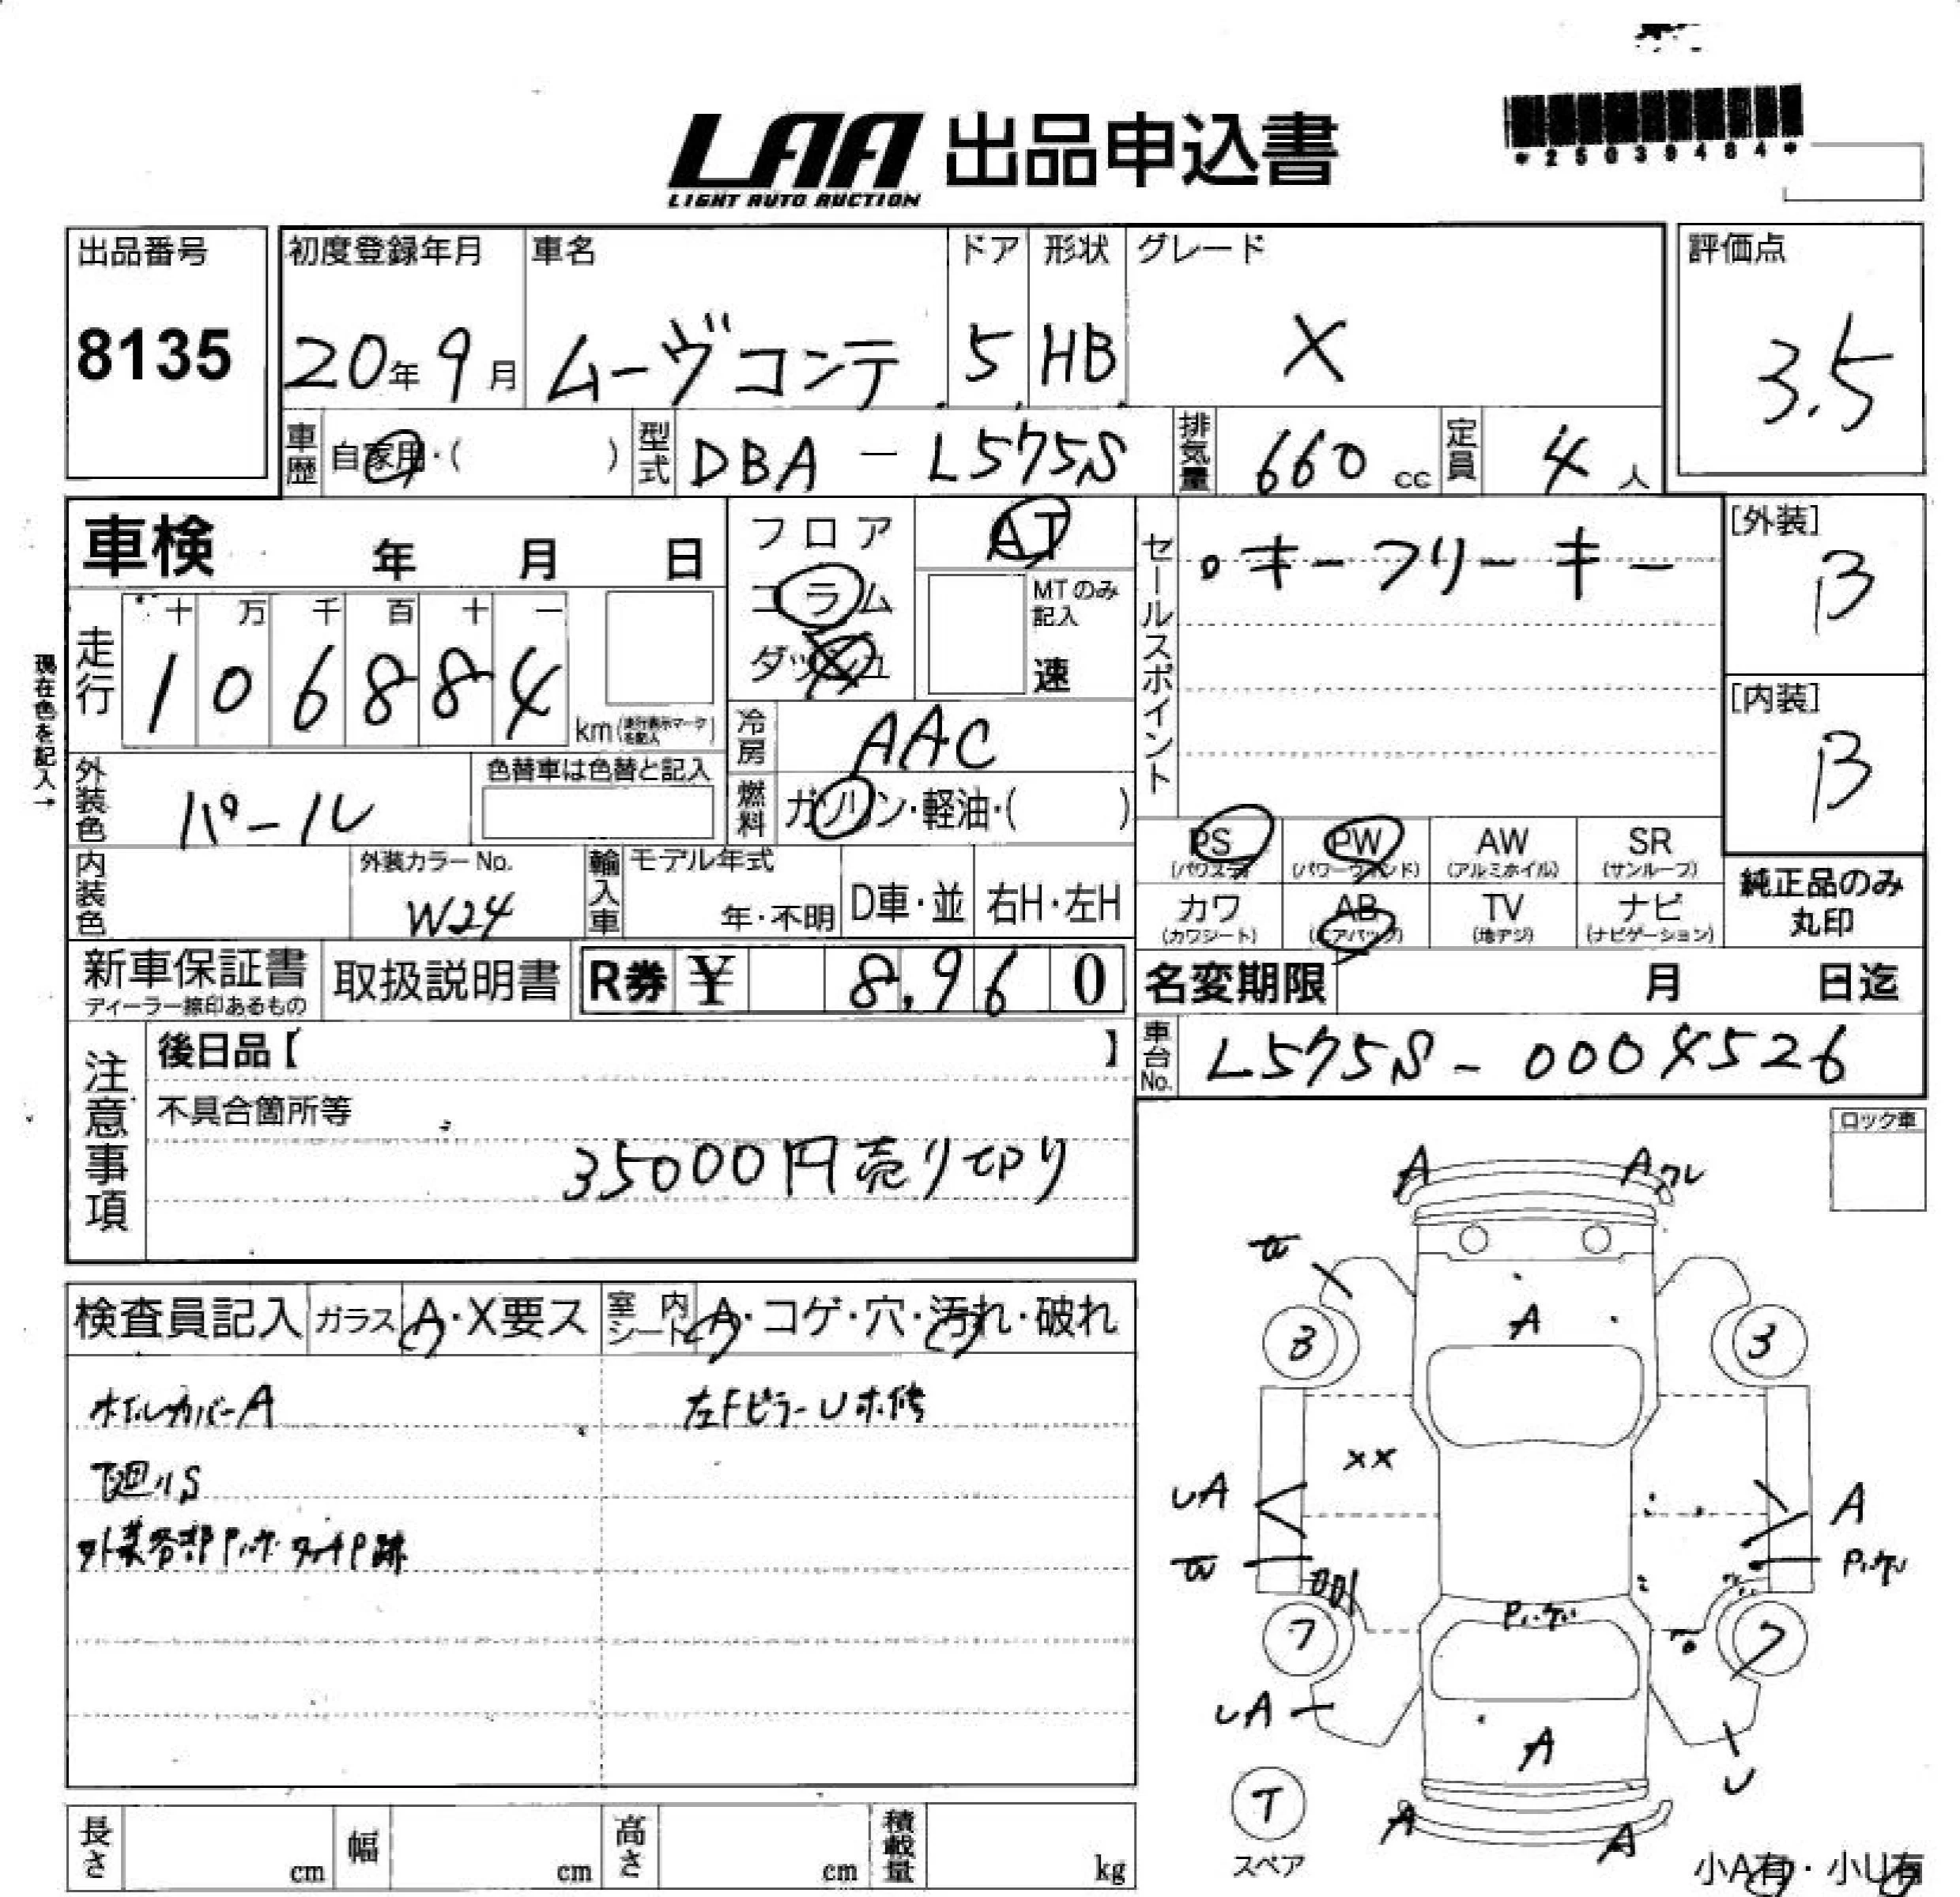 LAA 出品申込書
LIGHT AUTO AUCTION
*25039484*
出品番号 初度登録年月 車名 ドア 形状 グレード 評価点
8135 20年9月 ムーヴコンテ 5 HB X 3.5
車歴 自家用・( ) 型式 DBA-L575S 排気量 660cc 定員 4人
車検 年 月 日
フロア
コラム
ダッシュ
AT
MTのみ記入
速
現在色を記入→
走行 十 万 千 百 十 一
106884 km(走行表示マークを記入)
冷房 AAC
燃料 ガソリン・軽油・( )
外装色 パール 色替車は色替と記入
内装色 外装カラーNo. W24
輸入車 モデル年式 年・不明 D車・並 右H・左H
セールスポイント
・キーフリーキー
[外装] B
[内装] B
PS (パワステ) PW (パワーウインド) AW (アルミホイル) SR (サンルーフ)
カワ (カワシート) AB (エアバッグ) TV (地デジ) ナビ (ナビゲーション)
純正品のみ丸印
新車保証書 ディーラー捺印あるもの 取扱説明書 R券 ¥ 8,960
名変期限 月 日迄
車台No. L575S-0004526
注意事項
後日品【 】
不具合箇所等
35000円売り切り
ロック車
検査員記入 ガラス A・X要ス 室内シート A・コゲ・穴・汚れ・破れ
ホイルカバーA
左FピラーU補修
下廻りS
外装各部 タッチP跡
A
A ワレ
A
3
3
XX
UA
A
7
7
UA
A
U
T
スペア
A
A
長さ cm 幅 cm 高さ cm 積載量 kg
小A有・小U有